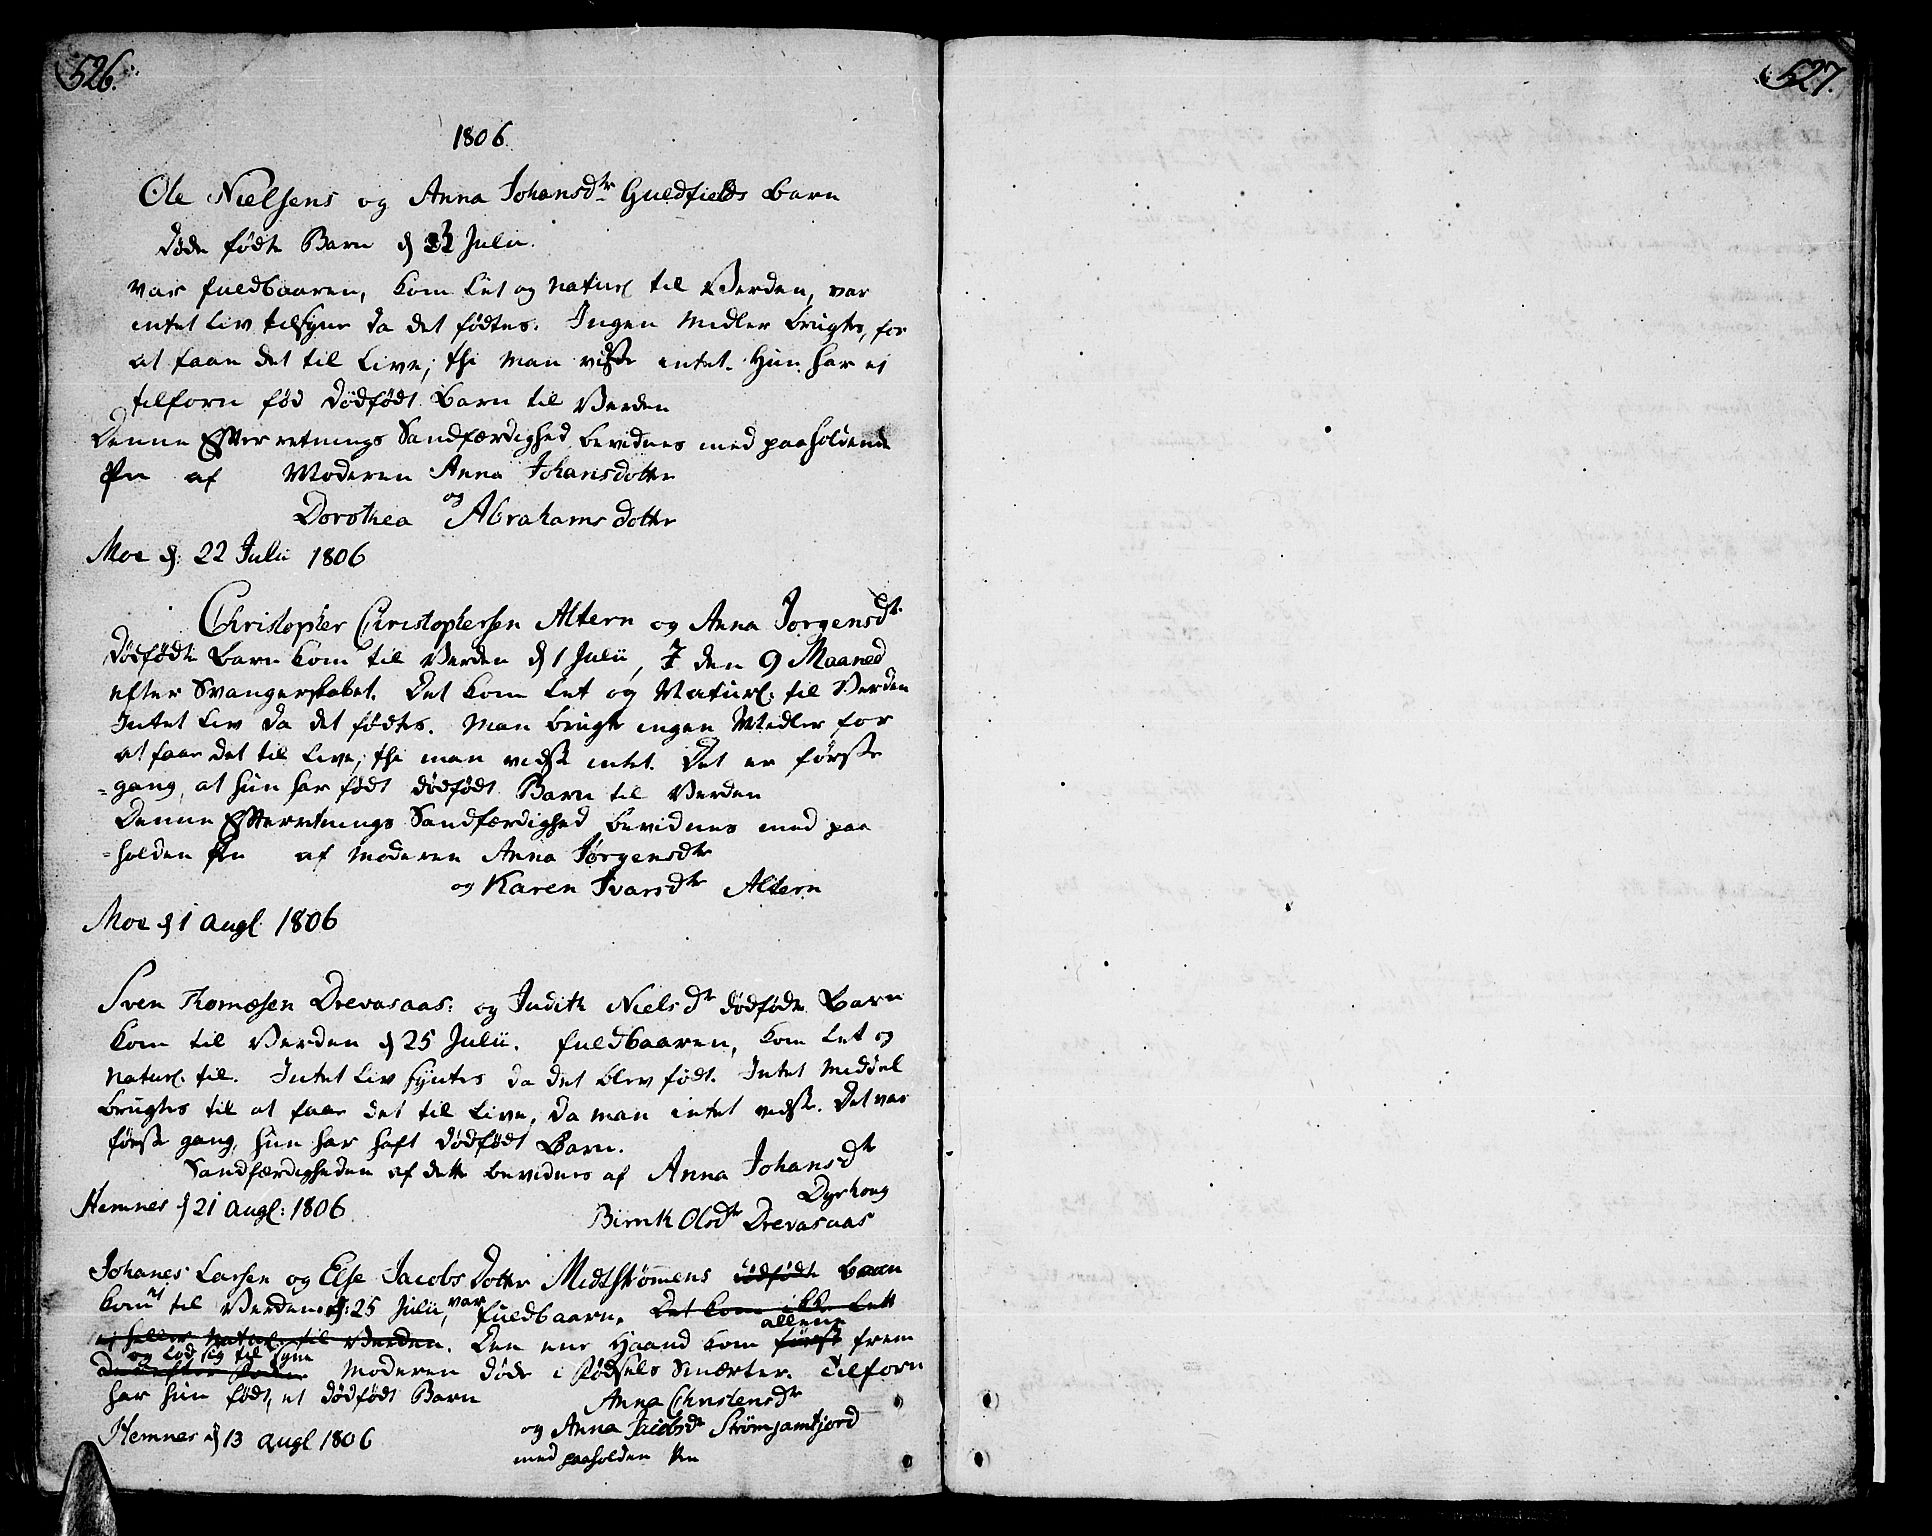 526.
1806.
Ole Nielsens og Anna Johansdtr Guldfields Barn
døde fødte Barn d 21 Julii.
var fuldbaaren, kom let og naturl til Verden, var
intet Liv tilsyne da det fødtes. Ingen Midler brugtes, for
at faae det til Live; thi man vidste intet. Hun har ej
tilforn fød dødfødt Barn til Verden
Denne Efterretnings Sandfærdighed bevidnes med paaholdende
Pen af Moderen Anna Johansdotter
og
Dorothea Abrahamsdotter
Moe d: 22 Julii 1806
Christopher Christophersen Altern og Anna Jørgensdt.
dødfødte Barn kom til Verden d 1 Julii, I den 9 Maaned
efter Svangerskabet. Det kom let og Naturl: til Verden
Intet Liv da det fødtes. Man brugte ingen Midler for
at faae det til Live; thi man vidste intet. Det er første
=gang, at hun har født dødfødt Barn til Verden
Denne Efterretnings Sandfærdighed bevidnes med paa
=holden Pen af Moderen Anna Jørgensdtr
og Karen Ivarsdtr Altern
Moe d 1 Augl: 1806
Sven Thomæsen Drevasaas: og Judith Nielsdtr dødføde Barn
kom til Verden d 25 Julii. fuldbaaren, kom let og
Naturl: til. Intet Liv syntes da det blev født. Intet Middel
brugtes til at faae det til Live, da man intet vidste. Det var
første gang, hun har haft dødfødt Barn.
Sandfærdigheden af dette bevidnes af Anna Johansdtr
Dyrhoug
Hemnes d 21 Augl: 1806
Birrit Olsdtr Drevasaas
Johanes Larsen og Else Jacobs Dotter Midtstrømens dødfødte Barn
kom til Verden d: 25 Julii, var fuldbaaren. Det kom ikke Lett
ej heller Naturl: til Verden. Den ene Haand kom først allene frem
og lod sig til Syne
Moderen døde i Fødsels Smerter. Tilforn
har hun født, et dødfødt Barn
Anna Christensdtr
Hemnes d 13 Augl 1806
og Anna Jacobsdtr Strømsamtjord
med paaholden Pen
527.